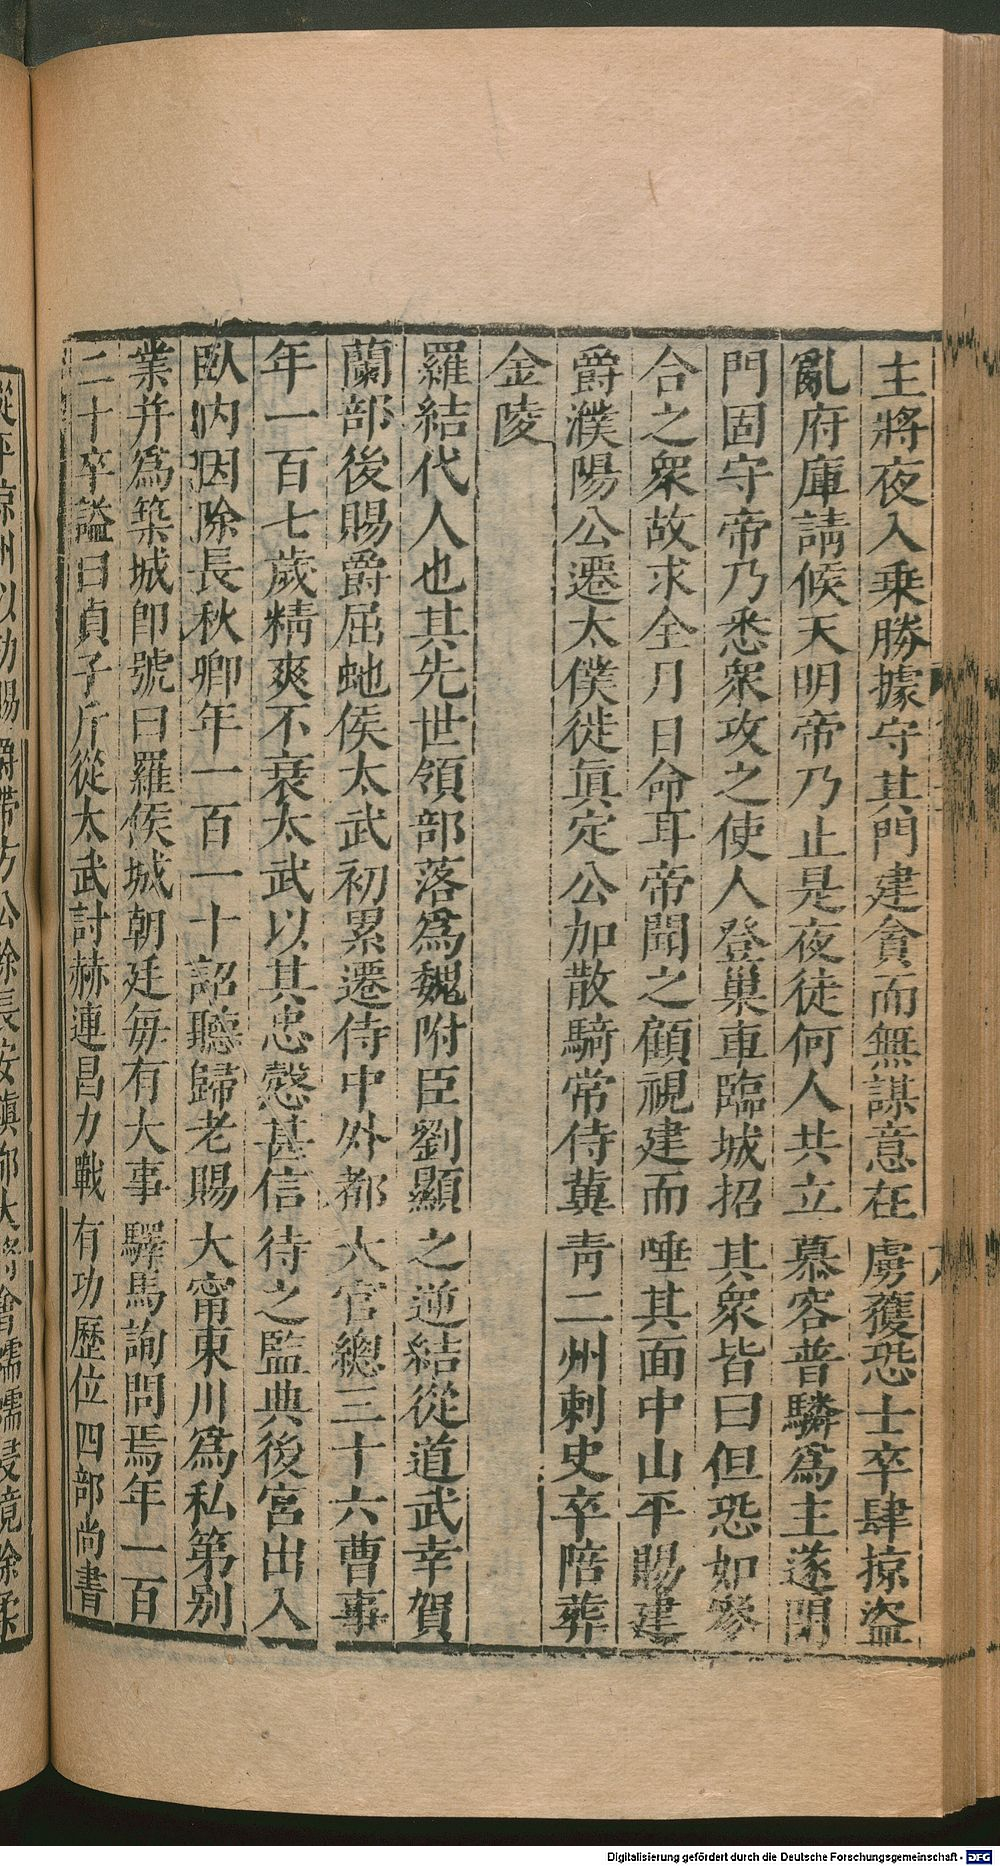 主將夜入乗勝據守其門建貪而無謀意在虜獲恐士卒肆掠盜
亂府庫請候天明帝乃止是夜徒何人共立慕容普驎爲主遂閉
門固守帝乃悉衆攻之使人登巢車臨城招其衆皆曰但恐如參
合之衆故求全月日命耳帝聞之顧視建而唾其面中山平賜建
爵濮陽公遷太僕徙眞定公加散騎常侍冀青二州刺史卒陪葬
金陵
羅結代人也其先世領部落爲魏附臣劉顯之逆結從道武幸賀
蘭部後賜爵屈虵侯太武初累遷侍中外都大官總三十六曹事
年一百七歲精爽不衰太武以其忠慤甚信待之監典後宮出入
臥内因除長秋卿年一百一十詔聽歸老賜大甯東川爲私第别
業并爲築城即號曰羅侯城朝廷毎有大事驛馬詢問焉年一百
二十卒謚曰貞子斤從太武討赫連昌力戰有功歷位四部尚書
從平涼州以功賜爵帶方公除長安鎭都大將會蠕蠕侵境除柔
Digitalisierung gefördert durch die Deutsche Forschungsgemeinschaft - DFG